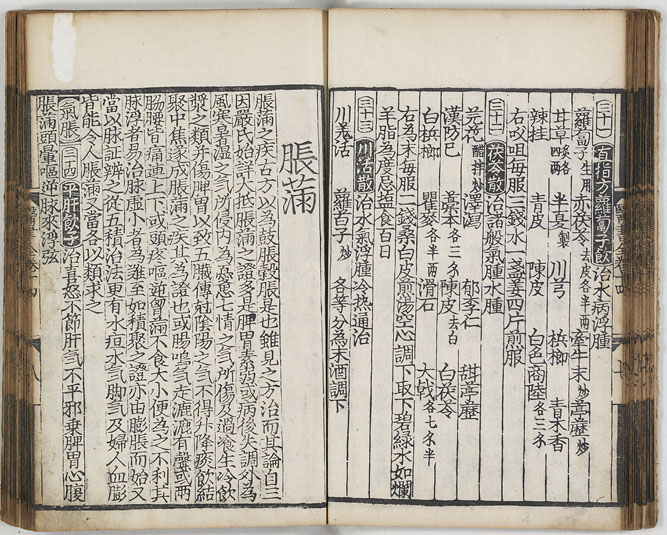 三十一 直指方蘿蔔子飲 治水病浮腫
蘿蔔子生用 赤茯苓去皮各半兩 牽牛末炒 葶藶炒
甘草炙各四兩 半夏製 川芎 檳榔 青木香
辣桂 青皮 陳皮 白色商陸各三錢
右㕮咀每服三錢水一盞姜四片煎服
三十二 茯苓散 治諸般氣腫水腫
芫花醋拌炒 澤瀉 郁李仁 甜葶藶
漢防已 藁本各三錢 陳皮去白 白茯苓
白檳榔 瞿麥各半兩 滑石 大戟各七錢半
右為末每服一錢桑白皮煎湯空心調下取下碧綠水如爛
羊脂為度忌塩食百日
三十三 川活散 治水氣浮腫冷热通治
川羌活 蘿蔔子炒 各等分為末酒調下
脹滿
脹滿之疾古方以為鼓脹榖脹是也錐見之方治而其論自三
因嚴氏始詳大抵脹滿之證多是脾胃素弱或病後失調外為
風寒暑濕之氣所侵内為憂恚七情之氣所傷及過飡生冷飲
漿之類并傷脾胃以致五臟傳射陰陽之氣不得升降痰飲結
聚中焦遂成脹滿之疾其為證也或腸鳴氣走漉漉有聲或兩
脇腰皆痛連上下或頭疼嘔逆胷滿不食大小便為之不利其
脉浮者易治脉虛小者為難至如積聚之證亦由膨脹而始又
當以脉証辨之從五積治法更有水疸水氣脚氣及婦人血膨
皆能令人脹滿又當各以類求之
氣脹 三十四 平肝飲子 治喜怒不節肝氣不平邪乗脾胃心腹
脹滿頭暈嘔逆脉來浮弦